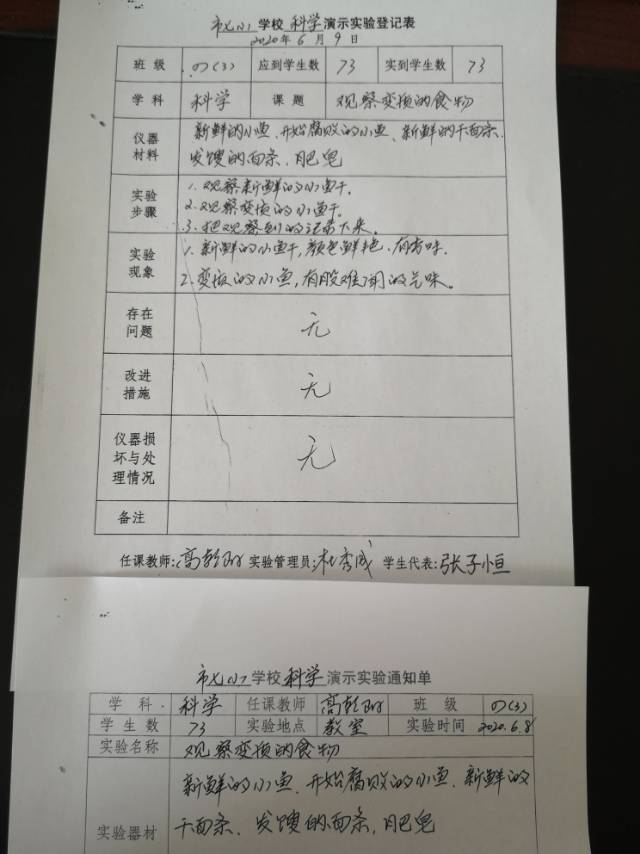 市七小学校科学演示实验登记表
2020年6月9日
班级 四(3) 应到学生数 73 实到学生数 73
学科 科学 课题 观察变质的食物
仪器材料 新鲜的小鱼、开始腐败的小鱼、新鲜的干面条、
发馊的面条、肥皂
实验步骤 1.观察新鲜的小鱼干。
2.观察变质的小鱼干。
3.把观察到的记录下来。
实验现象 1.新鲜的小鱼干,颜色鲜艳,有香味.
2.变质的小鱼,有股难闻的气味。
存在问题 无
改进措施 无
仪器损坏与处理情况 无
备注
任课教师: 实验管理员: 学生代表:张子恒
市七小学校科学演示实验通知单
学科 科学 任课教师 班级 四(3)
学生数 73 实验地点 教室 实验时间 2020.6.8
实验名称 观察变质的食物
新鲜的小鱼、开始腐败的小鱼、新鲜的
实验器材 干面条、发馊的面条、肥皂